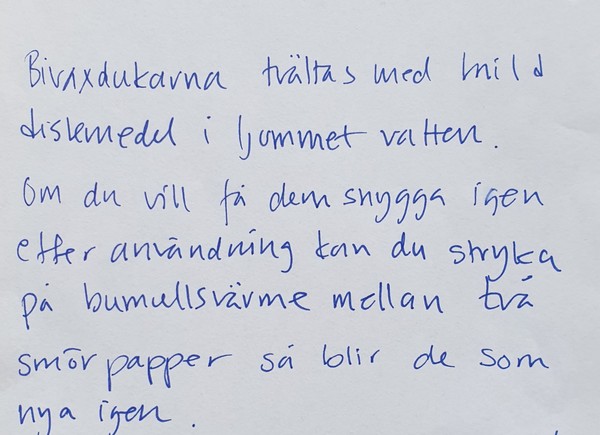 Bivaxdukarna tvättas med mild
diskmedel i ljummet vatten.
Om du vill få dem snygga igen
efter användning kan du stryka
på bumullsvärme mellan två
smörpapper så blir de som
nya igen.